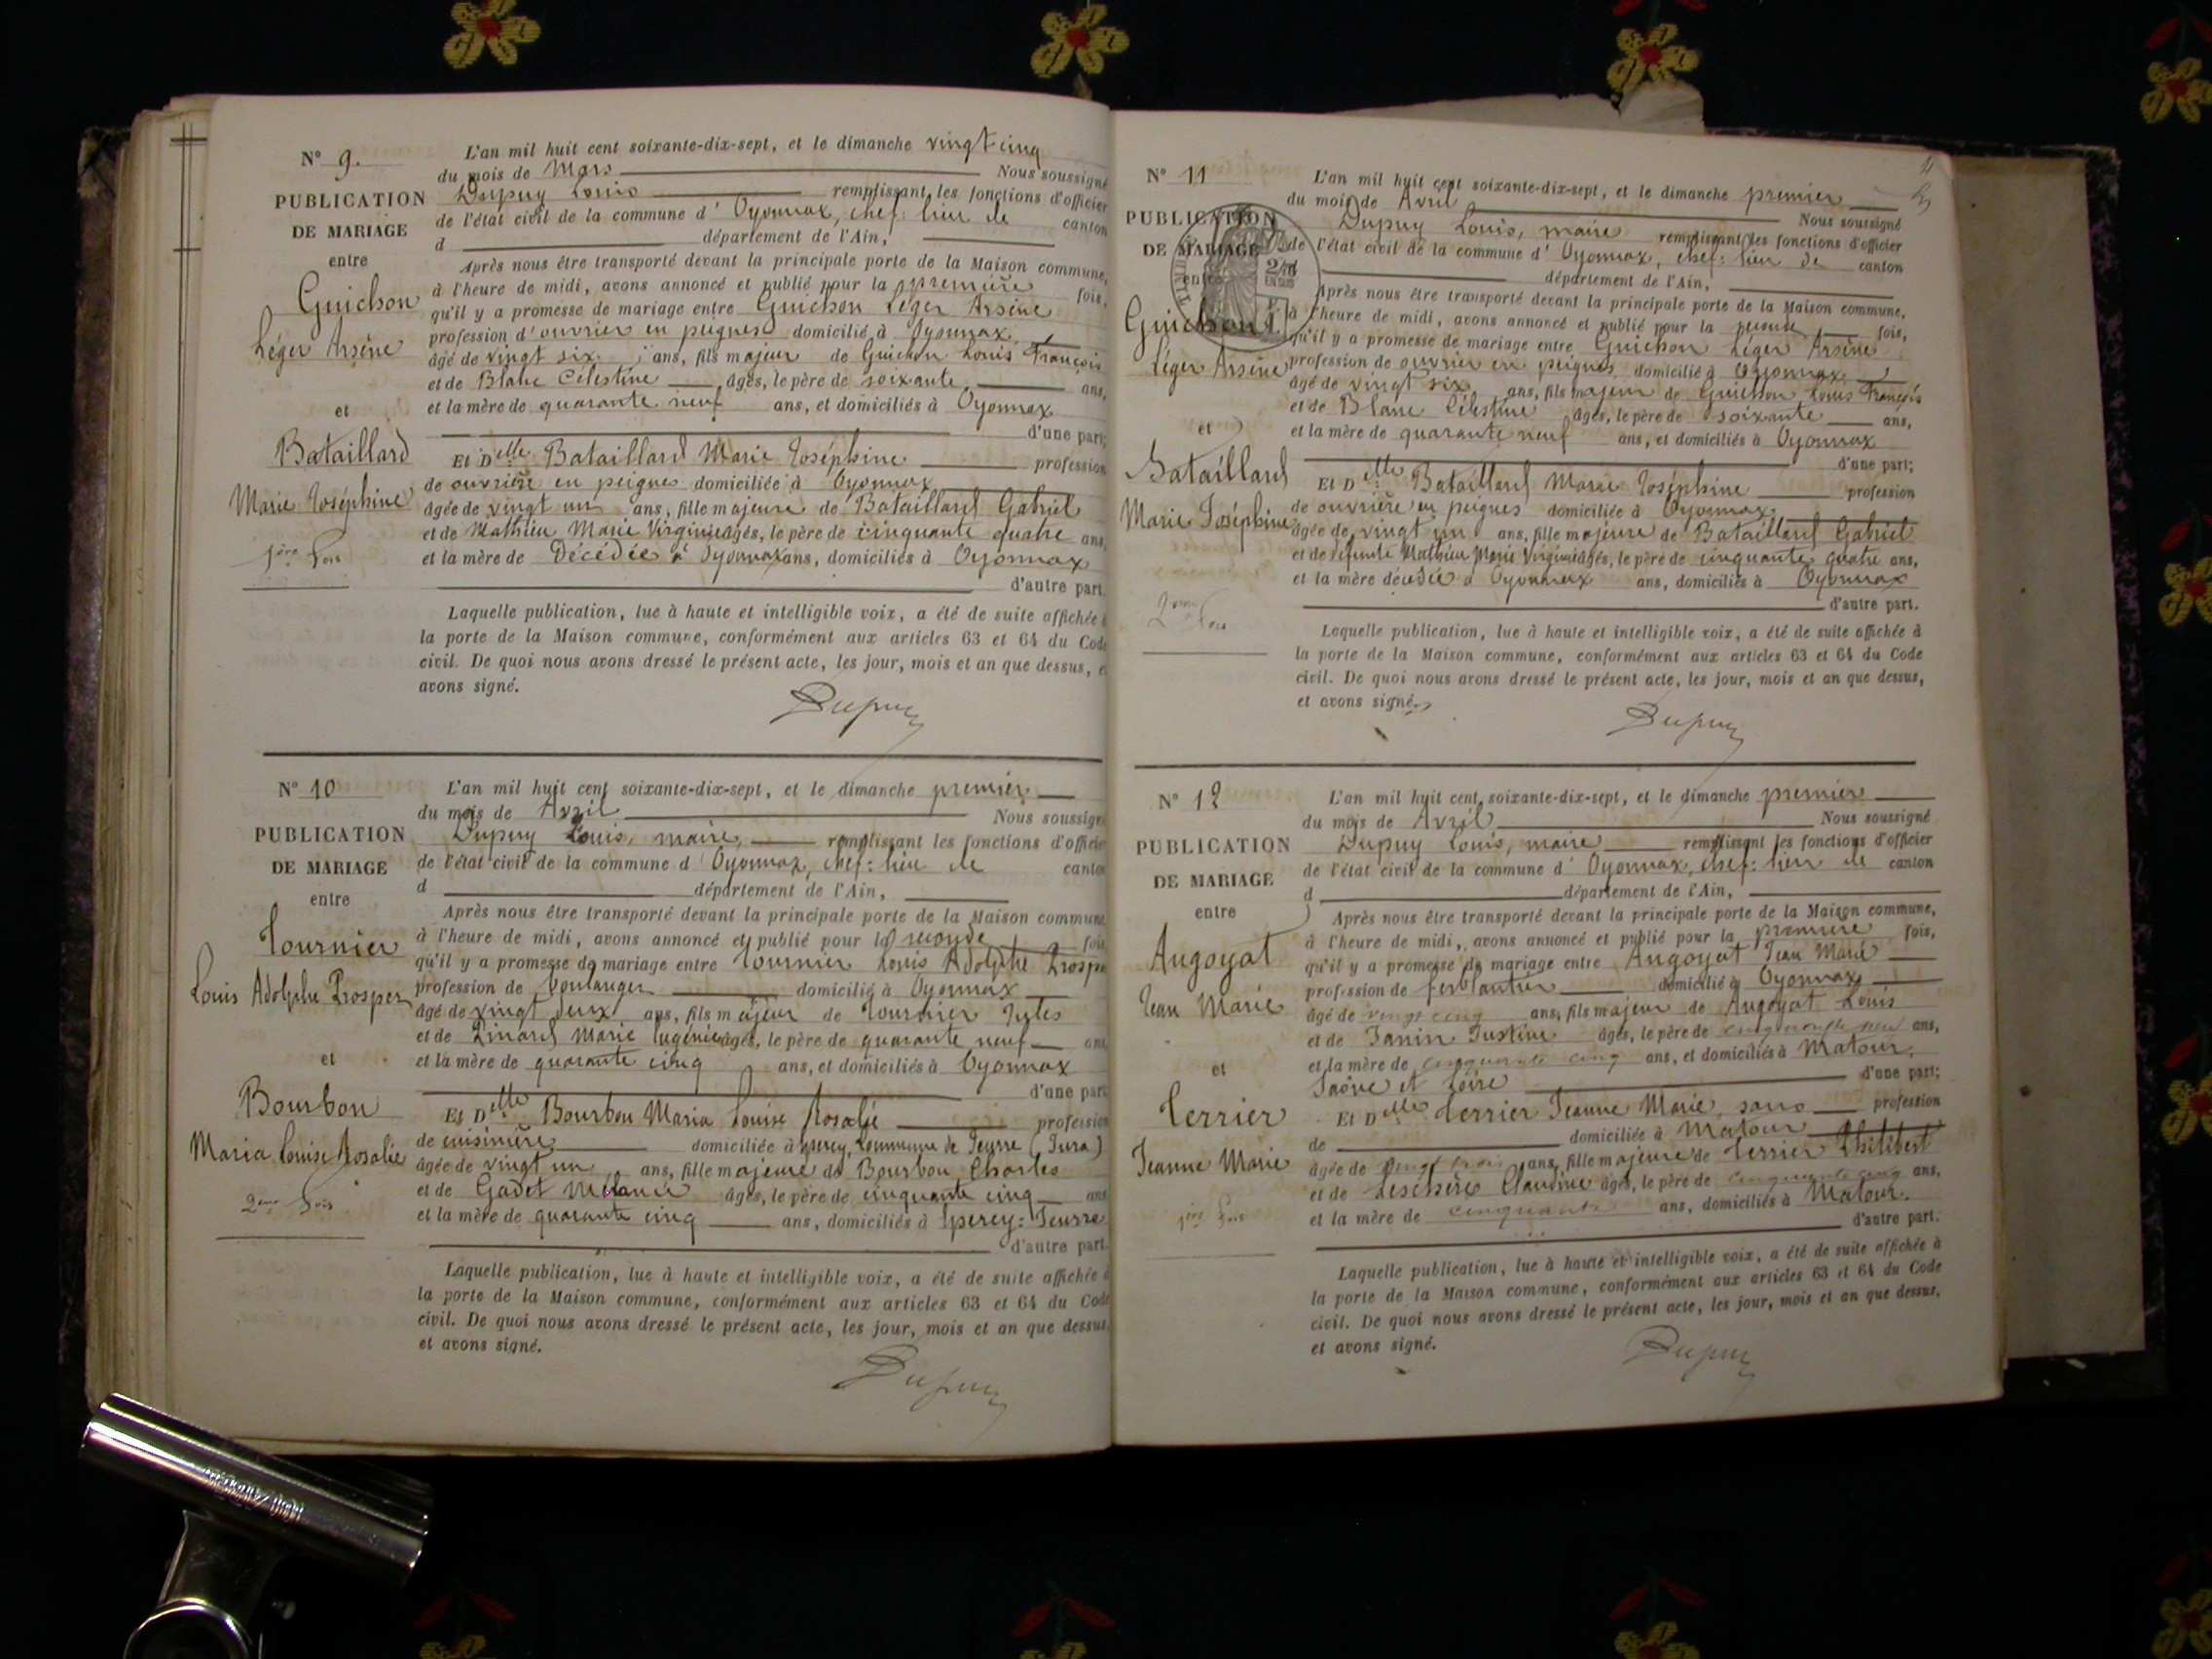 N° 9.
PUBLICATION
DE MARIAGE
entre
Guichon
Léger Arsène
et
Bataillard
Marie Joséphine
1ère Fois
L'an mil huit cent soixante-dix-sept, et le dimanche vingt cinq
du mois de Mars Nous soussigné
Dupuy Louis remplissant les fonctions d'officier
de l'état civil de la commune d'Oyonnax, chef: lieu de canton
d département de l'Ain,
Après nous être transporté devant la principale porte de la Maison commune,
à l'heure de midi, avons annoncé et publié pour la première fois,
qu'il y a promesse de mariage entre Guichon Léger Arsène
profession d'ouvrier en peignes domicilié à Oyonnax,
âgé de vingt six ans, fils majeur de Guichon Louis François
et de Blanc Célestine âgés, le père de soixante ans,
et la mère de quarante neuf ans, et domiciliés à Oyonnax
d'une part;
Et Delle Bataillard Marie Joséphine profession
de ouvrière en peignes domiciliée à Oyonnax
âgée de vingt un ans, fille majeure de Bataillard Gabriel
et de Mathieu Marie Virginie âgés, le père de cinquante quatre ans,
et la mère de Décédée à Oyonnax ans, domiciliés à Oyonnax
d'autre part.
Laquelle publication, lue à haute et intelligible voix, a été de suite affichée à
la porte de la Maison commune, conformément aux articles 63 et 64 du Code
civil. De quoi nous avons dressé le présent acte, les jour, mois et an que dessus, e
avons signé.
Dupuy
N° 10
PUBLICATION
DE MARIAGE
entre
Tournier
Louis Adolphe Prosper
et
Bourbon
Maria Louise Rosalie
2ème Fois
L'an mil huit cent soixante-dix-sept, et le dimanche premier
du mois de Avril Nous soussigné
Dupuy Louis, maire, remplissant les fonctions d'officier
de l'état civil de la commune d'Oyonnax, chef: lieu de canton
d département de l'Ain,
Après nous être transporté devant la principale porte de la Maison commune,
à l'heure de midi, avons annoncé et publié pour la seconde fois
qu'il y a promesse de mariage entre Tournier Louis Adolphe Prosper
profession de boulanger domicilié à Oyonnax
âgé de vingt deux ans, fils majeur de Tournier Jules
et de Pinard Marie Eugénie âgés, le père de quarante neuf ans
et la mère de quarante cinq ans, et domiciliés à Oyonnax
d'une part
Et Delle Bourbon Maria Louise Rosalie profession
de cuisinière domiciliée à Epercy, Commune de Jeurre (Jura)
âgée de vingt un ans, fille majeure de Bourbon Charles
et de Gadet Mélanie âgés, le père de cinquante cinq ans
et la mère de quarante cinq ans, domiciliés à Epercy: Jeurre
d'autre part.
Laquelle publication, lue à haute et intelligible voix, a été de suite affichée à
la porte de la Maison commune, conformément aux articles 63 et 64 du Code
civil. De quoi nous avons dressé le présent acte, les jour, mois et an que dessus,
et avons signé.
Dupuy
N° 11
PUBLICATION
DE MARIAGE
entre
Guichon
Léger Arsène
et
Bataillard
Marie Joséphine
2ème Fois
L'an mil huit cent soixante-dix-sept, et le dimanche premier
du mois de Avril Nous soussigné
Dupuy Louis, maire remplissant les fonctions d'officier
de l'état civil de la commune d'Oyonnax, chef: lieu de canton
département de l'Ain,
Après nous être transporté devant la principale porte de la Maison commune,
à l'heure de midi, avons annoncé et publié pour la fois,
qu'il y a promesse de mariage entre Guichon Léger Arsène
profession de ouvrier en peignes domicilié à Oyonnax
âgé de vingt six ans, fils majeur de Guichon Louis François
et de Blanc Célestine âgés, le père de soixante ans,
et la mère de quarante neuf ans, et domiciliés à Oyonnax
d'une part;
Et Delle Bataillard Marie Joséphine profession
de ouvrière en peignes domiciliée à Oyonnax
âgée de vingt un ans, fille majeure de Bataillard Gabriel
et de défunte Mathieu Marie Virginie âgés, le père de cinquante quatre ans,
et la mère décédée à Oyonnax ans, domiciliés à Oyonnax
d'autre part.
Laquelle publication, lue à haute et intelligible voix, a été de suite affichée à
la porte de la Maison commune, conformément aux articles 63 et 64 du Code
civil. De quoi nous avons dressé le présent acte, les jour, mois et an que dessus,
et avons signé.
Dupuy
N° 12
PUBLICATION
DE MARIAGE
entre
Augoyat
Jean Marie
et
Terrier
Jeanne Marie
1ère Fois
L'an mil huit cent soixante-dix-sept, et le dimanche premier
du mois de Avril Nous soussigné
Dupuy Louis, maire remplissant les fonctions d'officier
de l'état civil de la commune d'Oyonnax, chef: lieu de canton
d département de l'Ain,
Après nous être transporté devant la principale porte de la Maison commune,
à l'heure de midi, avons annoncé et publié pour la première fois,
qu'il y a promesse de mariage entre Augoyat Jean Marie
profession de ferblantier domicilié à Oyonnax
âgé de vingt cinq ans, fils majeur de Augoyat Louis
et de Janin Justine âgés, le père de cinquante ans,
et la mère de cinquante cinq ans, et domiciliés à Matour,
Saône et Loire d'une part;
Et Delle Terrier Jeanne Marie, sans profession
de domiciliée à Matour
âgée de vingt trois ans, fille majeure de Terrier Philibert
et de Claudine âgés, le père de cinquante cinq ans,
et la mère de cinquante ans, domiciliés à Matour.
d'autre part.
Laquelle publication, lue à haute et intelligible voix, a été de suite affichée à
la porte de la Maison commune, conformément aux articles 63 et 64 du Code
civil. De quoi nous avons dressé le présent acte, les jour, mois et an que dessus,
et avons signé.
Dupuy